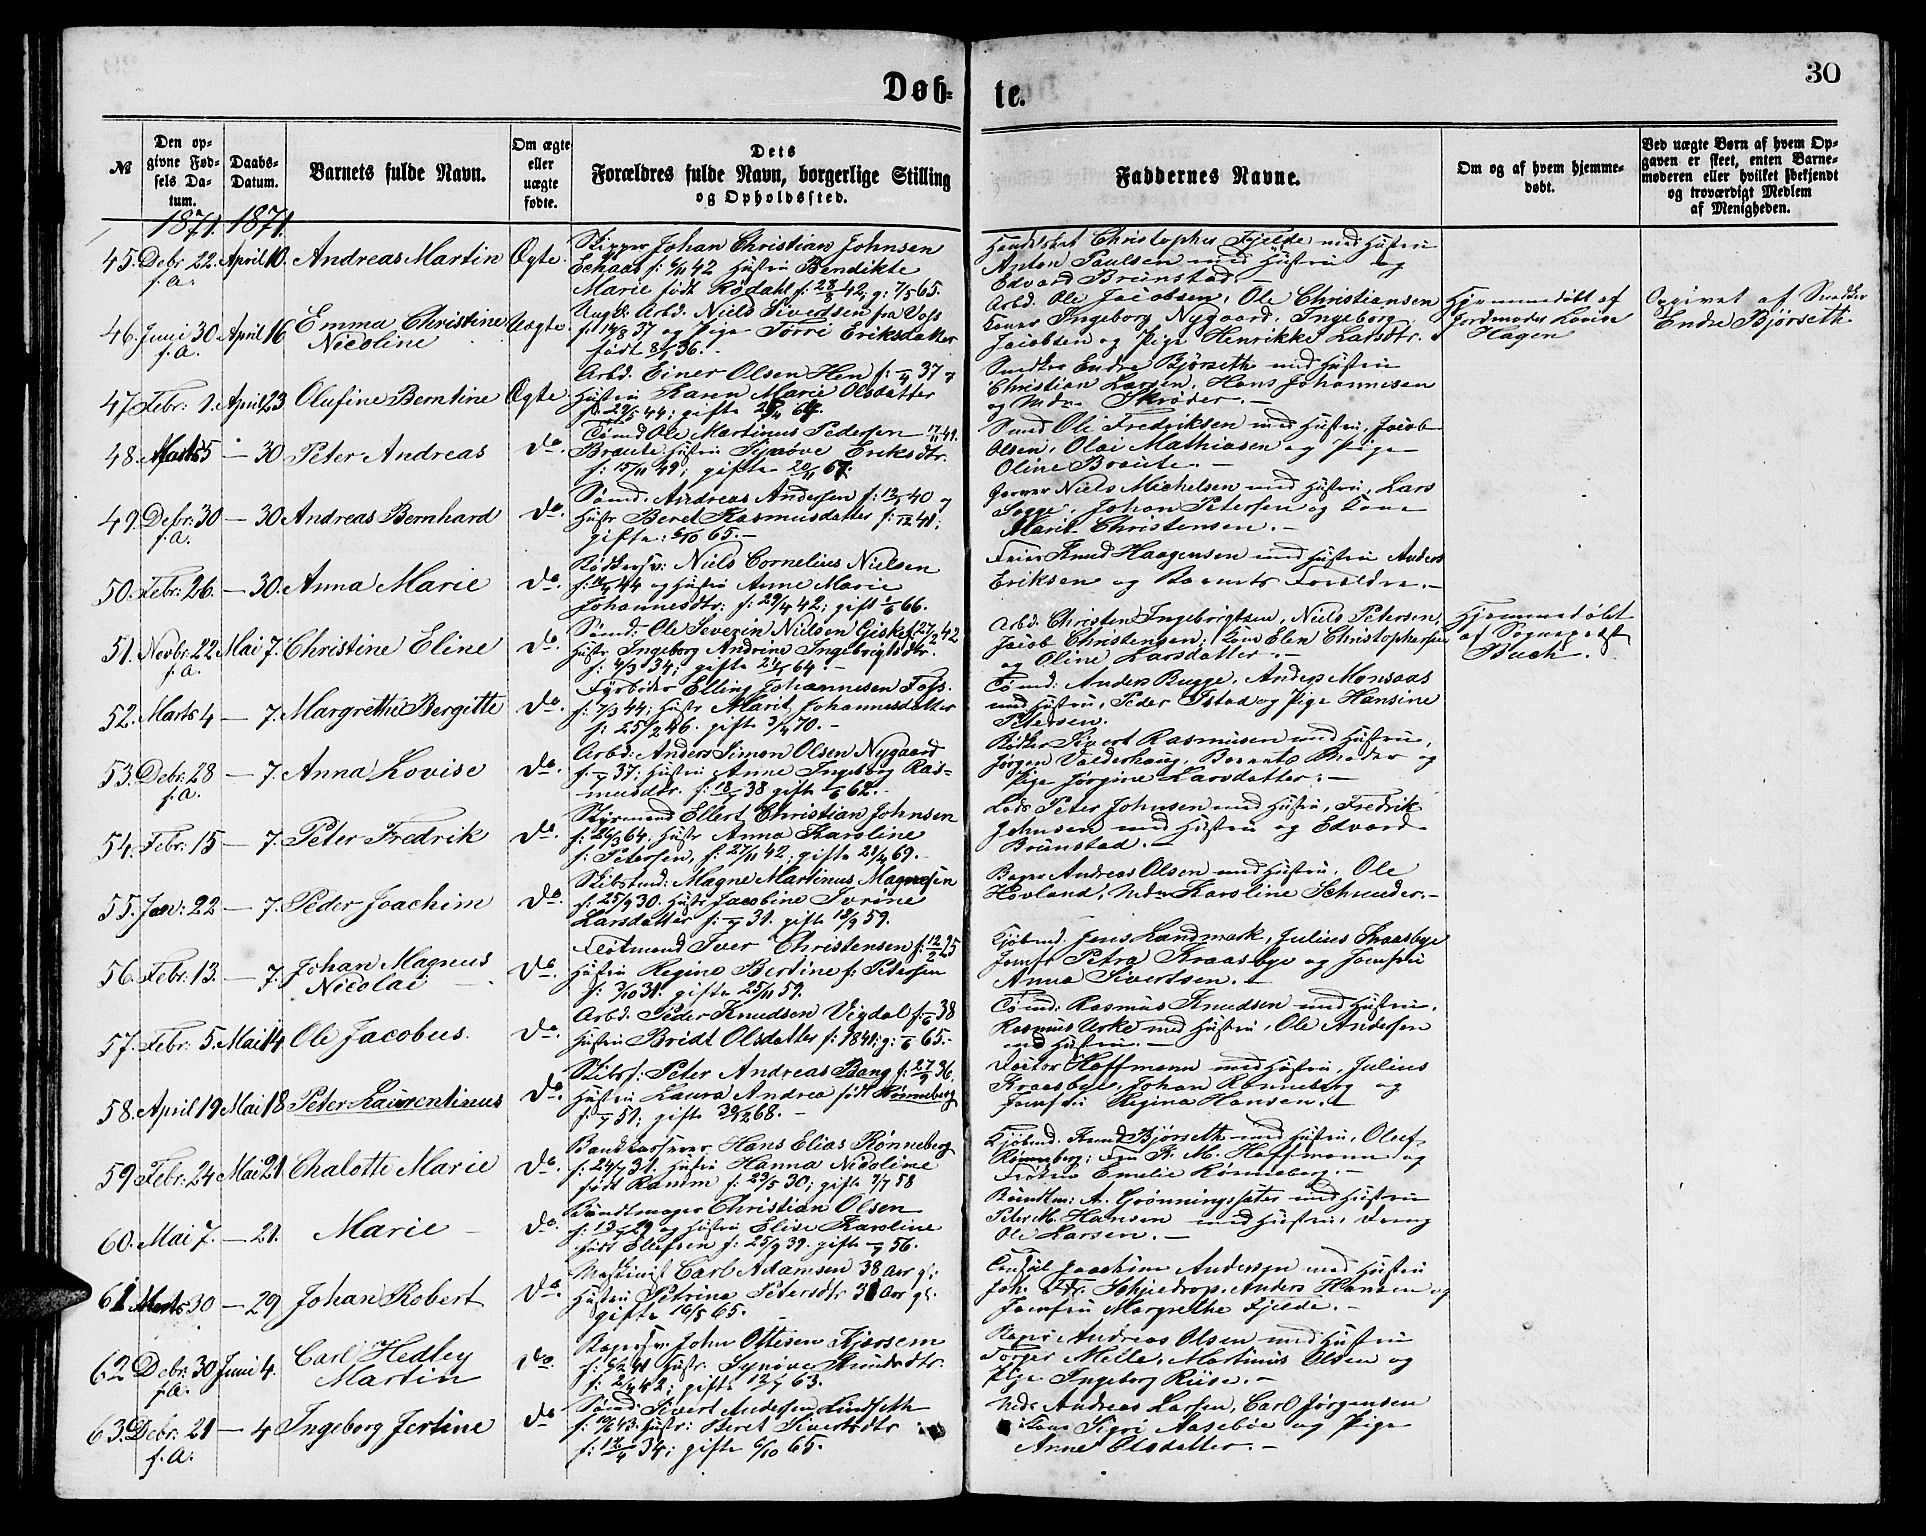 Døb-
te.
30
№
Den op-
givne Fød-
sels Da-
tum.
Daabs-
Datum.
Barnets fulde Navn.
Om ægte
eller
uægte
fødte.
Dets
Forældres fulde Navn, borgerlige Stilling
og Opholdssted.
Faddernes Navne.
Om og af hvem hjemme-
døbt.
Ved uægte Børn af hvem Op-
gaven er skeet, enten Barne-
moderen eller hvilket bekjendt
og troværdigt Medlem
af Menigheden.
1871. 1871.
45. Debr. 22. April 10. Andreas Martin Ægte.
f.a.
Skipper Johan Christian Johnsen
42 Hustru Bendikte
Marie født Rødahl f: 28/8 42, g: 7/5 65.
Christopher Fjelde med Hustru
Anton Paulsen med Hustru og
Edvard Brunstad.
46. Juni 30 April 16 Emma Christine Uægte.
f.a. Nicoline
Ungk. Arb. Niels Sivertsen fra Vofs
f. 14/8 37 og Pige Torri Eriksdatter
født 36.
Arbd. Ole Jacobsen, Ole Christiansen
Koner Ingeborg Nygaard, Ingeborg
Jacobsen og Pige Henrikke Larsdtr.
Hjemmedøbt af
Jordmoder Lovise
Hagen
Opgivet af Snedker
Endre Bjørseth
47. Febr: 1. April 23 Olufine Berntine Ægte
Arbd. Einer Olsen Hen f: 37
Hustru Karen Marie Olsdatter
44; gifte
Snedker Endre Bjørseth med Hustru
Christian Larsen, Hans Johannesen
og Skrøder.
48. Marts 5 — 30 Peter Andreas do.
Tømd Ole Martinus Pedersen 17/11 41.
Braute Hustru Synøve Eriksdtr.
f: 15/11 49; gifte 20/11 67.
Smed Ole Fredriksen med Hustru, Jacob
Olsen, Olai Mathiasen og Pige
Oline Braute.
49. Debr: 30 — 30 Andreas Bernhard do.
f.a.
Sømd. Andreas Andersen f: 40
Hustr Beret Rasmusdatter f: 41;
gifte: 6/10 65.
Garver Niels Michelsen med Hustru, Lars
Johan Petersen og Kone
Marit Christensen.
50. Febr: 26. — 30. Anna Marie do.
Niels Cornelius Nielsen
44 og Hustru Anne Marie
Johannesdtr: f: 29/4 42; gift 66.
Knud Haagensen med Hustru Anders
Eriksen og Barnets Forældre.
51. Novbr. 22 Mai 7. Christine Eline do.
f.a.
Sømd: Ole Severin Nielsen Giske f. 27/2 42
Hustr Ingeborg Andrine Ingebrigtsdtr.
f: 4/3 34, gifte 64.
Arbd. Christen Ingebrigtsen, Niels Petersen,
Jacob Christensen, Kone Elen Christophersen
og Oline Larsdatter.
Hjemmedøbt
af Sognepræst
Buch.
52. Marts 4 — 7. Margrethe Bergitte do.
Fyrbøder Elling Johannesen Fofs.
f: 7/3 44; Hustr Marit Johannesdatter
f: 25/2 46. gifte 3/4 70.
Tømd: Anders Bugge, Anders Monsaas
med Hustru, Peder Istad og Pige Hansine
Petersen.
53. Debr: 28 — 7. Anna Lovise do.
f.a.
Arbd: Anders Simon Olsen Nygaard
37; Hustru Anne Ingeborg Ras-
musdtr. f: 38 gifte 62.
Bødker Sivert Rasmusen med Hustru,
Jørgen Valderhaug, Barnets Moder og
Pige Jørgine Larsdatter.
54. Febr: 15 — 7. Peter Fredrik do.
Styrmand Ellert Christian Johnsen
f: 26/3 64, Hustr Anna Karoline
f: Petersen, f. 27/11 42; gifte 69.
Lods Peter Johnsen med Hustru, Fredrik
Johnsen med Hustru og Edvard
Brunstad.
55. Jan: 22 — 7. Peder Joachim do.
Skibstmd: Magne Martinus Magnesen
f: 25/9 30. Hustr Jacobine Iverine
Larsdatter f: 31. gifte 18/9 59.
Bager Andreas Olsen med Hustru, Ole
Hovland, Karoline Schrøder.
56. Febr. 13. — 7. Johan Magnus do.
Nicolai
Flotmand Iver Christensen f: 12/2 25
Hustru Regine Bertine f. Petersen
f: 3/10 31. gifte 25/11 59.
Kjøbmd. Jens Landmark, Julius Kraasbye
Jomfr Petra Kraasbye og Jomfru
Anna Sivertsen.
57. Febr: 5. Mai 14 Ole Jacobus. do.
Arbd. Peder Knudsen Vigdal f: 38
Hustru Bridt Olsdatter f: 1841; g: 65.
Tømd. Rasmus Knudsen med Hustru.
Rasmus Urke med Hustru, Ole Andersen
med Hustru.
58. April 19 Mai 18 Peter Laurentinus do.
Skibsf: Peter Andreas Bang f: 27/9 36,
Hustru Laura Andrea født Rønneberg
f: 51; gifte 68.
Doctor Hoffmann med Hustru, Julius
Kraasbye, Johan Rønneberg og
Jomfru Regina Hansen.
59. Febr: 24 Mai 21 Chalotte Marie do.
Bankkasserer Hans Elias Rønneberg
f: 31. Hustru Hanna Nicoline
født Ramm f: 29/5 30; gifte 58
Kjøbmd. Knud Bjørseth med Hustru, Oluf
Rønneberg; Fru Fr. M. Hoffmann og
Frøken Emelie Rønneberg.
60. Mai 7. — 21. Marie do.
Bundtmager Christian Olsen
f: 29 og Hustru Elise Karoline
født Ellefsen f: 25/9 39. gifte 56.
Bundtm: A. Grønningsæter med Hustru
Peter M. Hansen med Hustru, Dreng
Ole Larsen.
61 Marts 30 — 29 Johan Robert do.
Maskinist Carl Adamsen 38 Aar gl:
Hustru Petrina Petersdtr 31 Aar gl.
gifte 16/5 65.
Consul Joachim Andersen med Hustru
Joh. Fdr. Schjedrop, Anders Hansen og
Jomfru Margrethe Fjelde.
62 Debr: 30 Juni 4. Carl Hedley do.
f.a. Martin
John Ottesen Kjørsem
41 Hustr. Synøve Knudsdtr.
42; gifte 63.
Andreas Olsen med Hustru
Torger Melle, Martinus Olsen og
Pige Ingeborg Riise.
63. Debr: 21 — 4 Ingeborg Jertine do
f.a:
Sømd: Sivert Andersen Lindseth
43. Hustr: Beret Sivertsdtr
34; gifte 6/10 65.
Andreas Larsen, Carl Jørgensen
Kone Sigri Aasebøe og Pige
Anne Olsdatter.